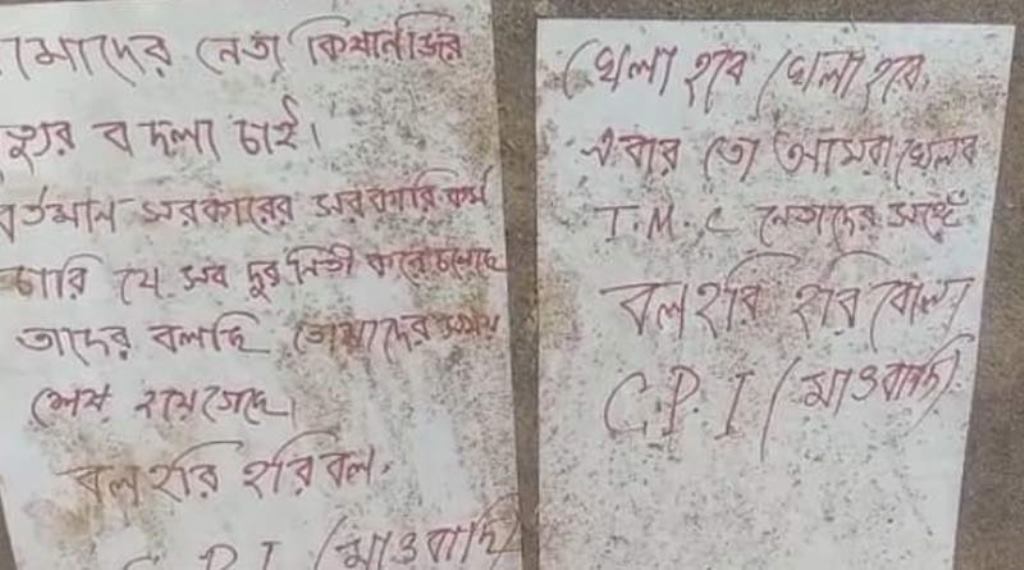 মোদের নেতা কিষানজির
ত্যুর বদলা চাই।
বর্তমান সরকারের সরকারি কর্ম
চারি যে সব দুর্নিতী করে চলেছে
তাদের বলছি তোমাদের সময়
শেষ হয়ে গেছে।
বল হরি হরি বল.
C P I (মাওবাদি)
খেলা হবে খেলা হবে.
এবার তো আমরা খেলব
T.M.C নেতাদের সঙ্গে
বল হরি হরি বোল
C.P.I (মাওবাদী)